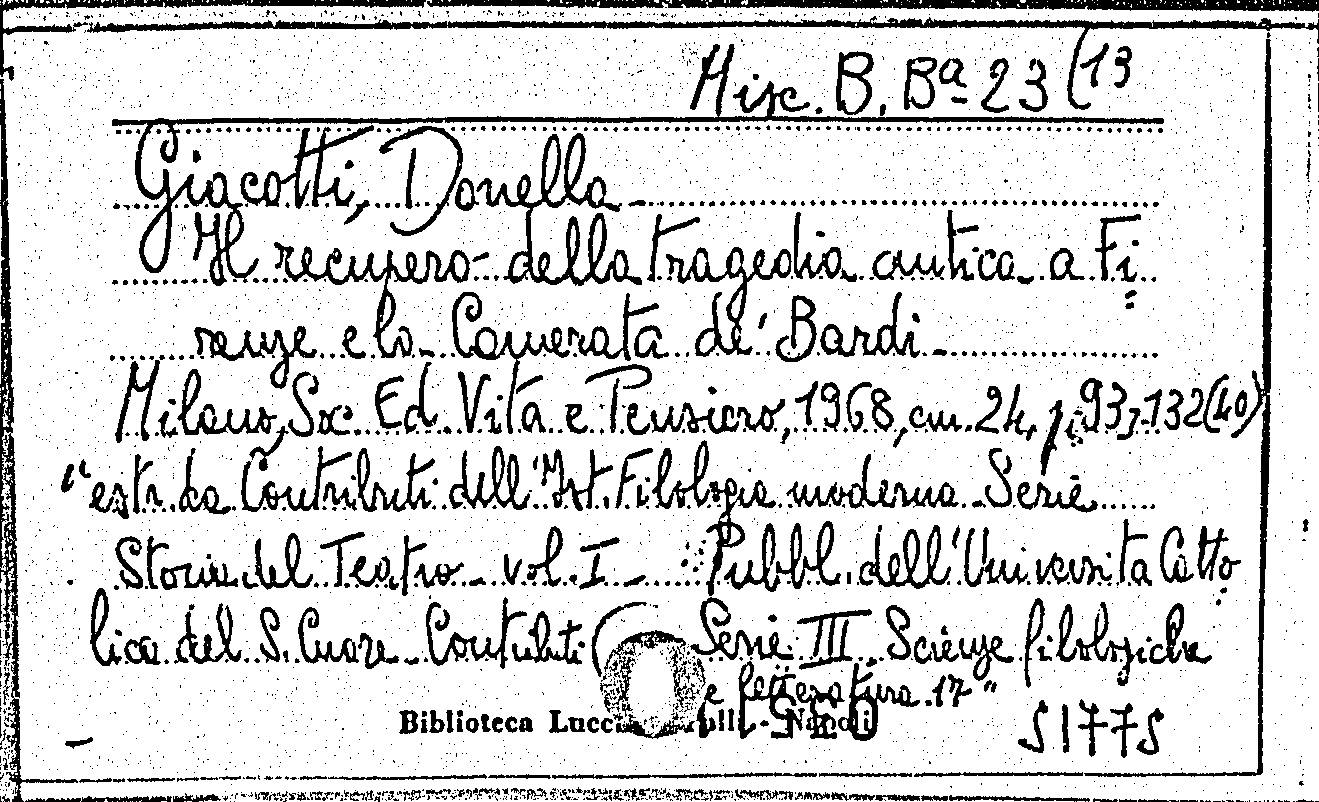 Misc. B. Bª 23 (13
Giacotti, Donella
Il recupero della tragedia antica a Fi=
renze e la Camerata de' Bardi
Milano, Soc. Ed. Vita e Pensiero, 1968, cm. 24, p. 93-132 (40)
"estr. da Contributi dell'Ist. Filologia moderna Serie
Storia del Teatro vol. I - Pubbl. dell'Università Catto=
lica del S. Cuore Contributi Serie III Scienze filologiche
e letteratura 17"
Biblioteca Napoli
51775